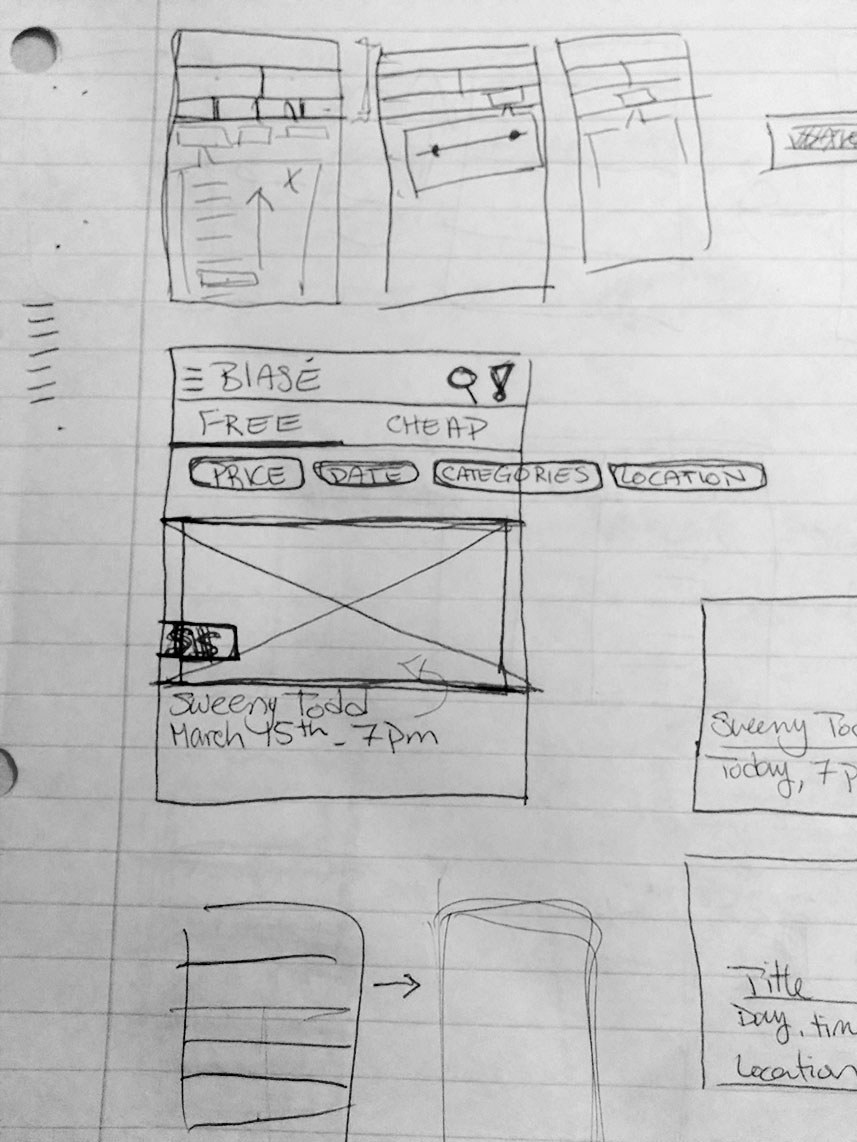 BLASÉ
FREE CHEAP
PRICE DATE CATEGORIES LOCATION
$$
Sweeny Todd
March 15th - 7pm
Sweeny Tod
Today, 7p
Title
Day, tim
Location